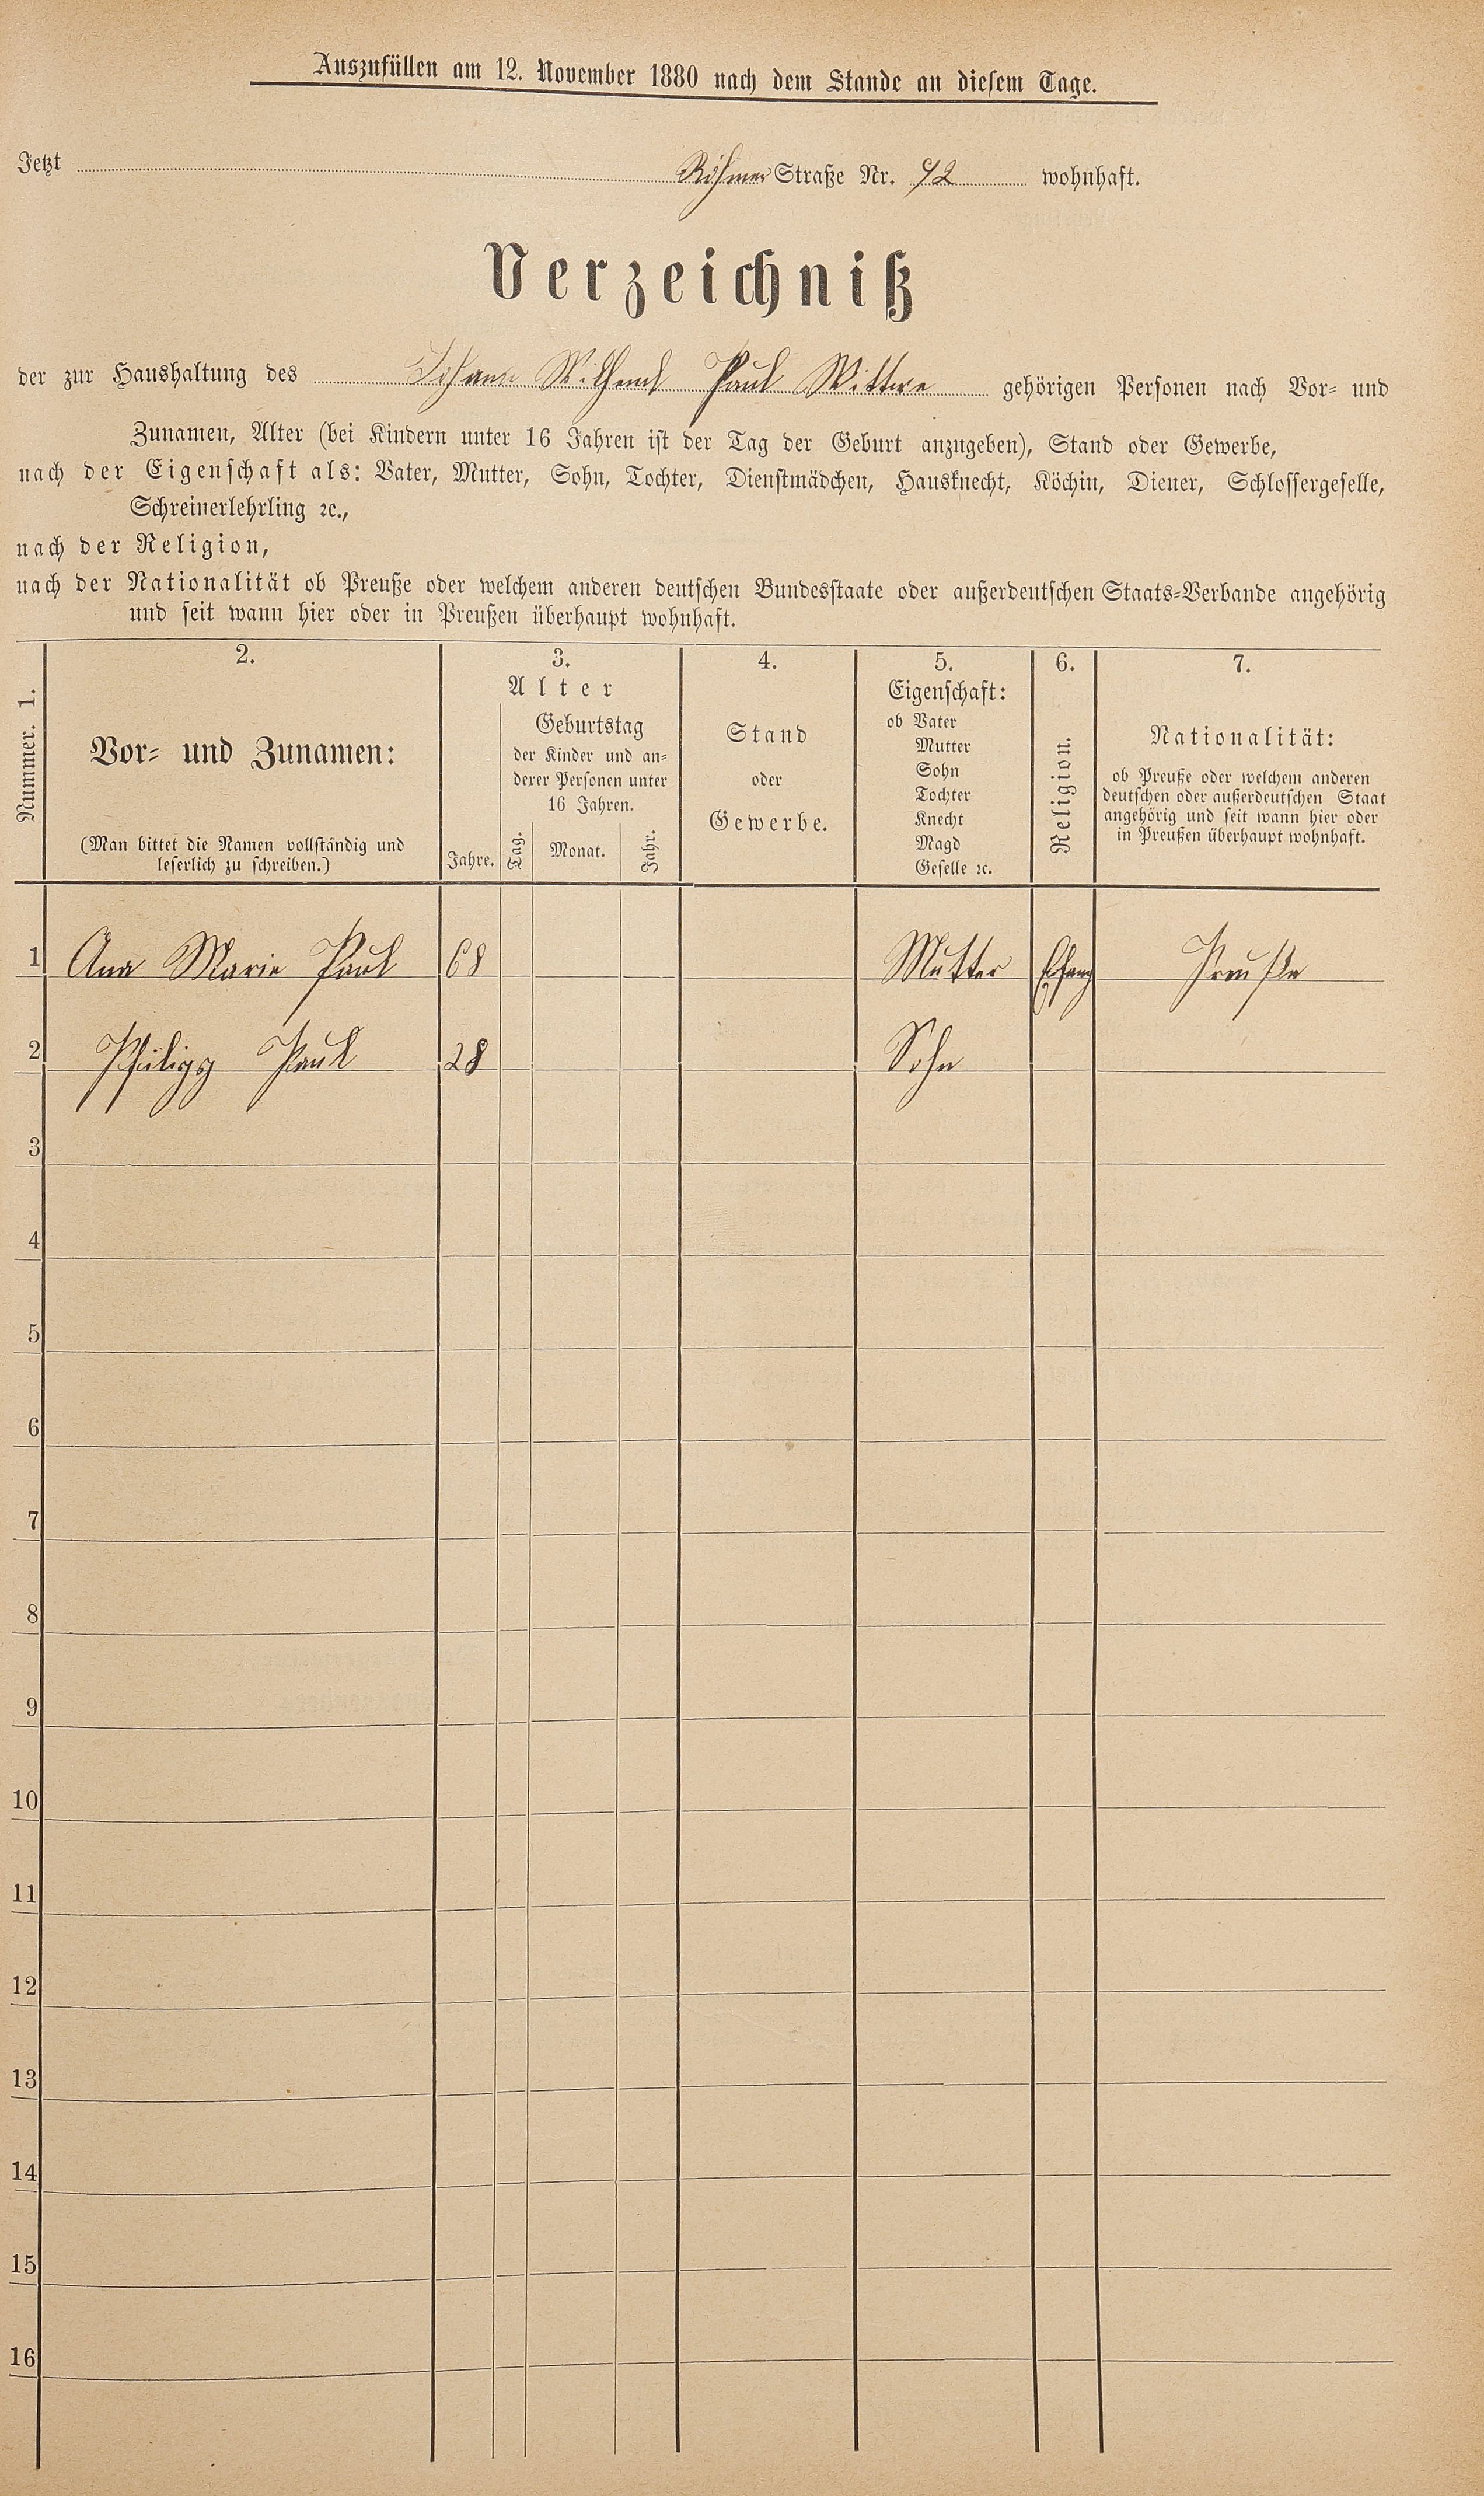 Auszufüllen am 12. November 1880 nach dem Stande an diesem Tage.
Jetzt Röhmer Straße Nr. 92 wohnhaft.
Verzeichniß
der zur Haushaltung des Johann Wilhemh Paul Wittwe gehörigen Personen nach Vor- und
Zunamen, Alter (bei Kindern unter 16 Jahren ist der Tag der Geburt anzugeben), Stand oder Gewerbe,
nach der Eigenschaft als: Vater, Mutter, Sohn, Tochter, Dienstmädchen, Hausknecht, Köchin, Diener, Schlossergeselle,
Schreinerlehrling ꝛc.,
nach der Religion,
nach der Nationalität ob Preuße oder welchem anderen deutschen Bundesstaate oder außerdeutschen Staats-Verbande angehörig
und seit wann hier oder in Preußen überhaupt wohnhaft.
Nummer. 1.
2.
Vor- und Zunamen:
(Man bittet die Namen vollständig und
leserlich zu schreiben.)
3.
Alter
Jahre.
Geburtstag
der Kinder und an-
derer Personen unter
16 Jahren.
Tag. Monat. Jahr.
4.
Stand
oder
Gewerbe.
5.
Eigenschaft:
ob Vater
Mutter
Sohn
Tochter
Knecht
Magd
Geselle ꝛc.
6.
Religion.
7.
Nationalität:
ob Preuße oder welchem anderen
deutschen oder außerdeutschen Staat
angehörig und seit wann hier oder
in Preußen überhaupt wohnhaft.
1 Ana Marie Paul 68 Mutter Preuße
2 Philipp Paul 28 Sohn
3
4
5
6
7
8
9
10
11
12
13
14
15
16